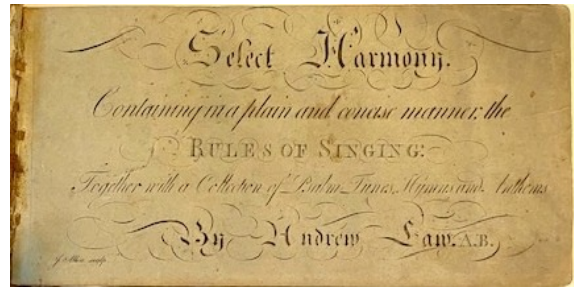 Select Harmony.
Containing in a plain and concise manner, the
RULES OF SINGING:
Together with a Collection of Psalm Tunes, Hymns and Anthems
By Andrew Law. A.B.